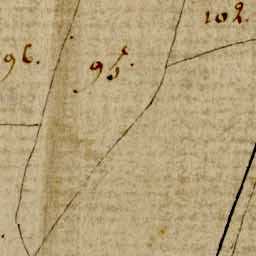 102.
96.
95.